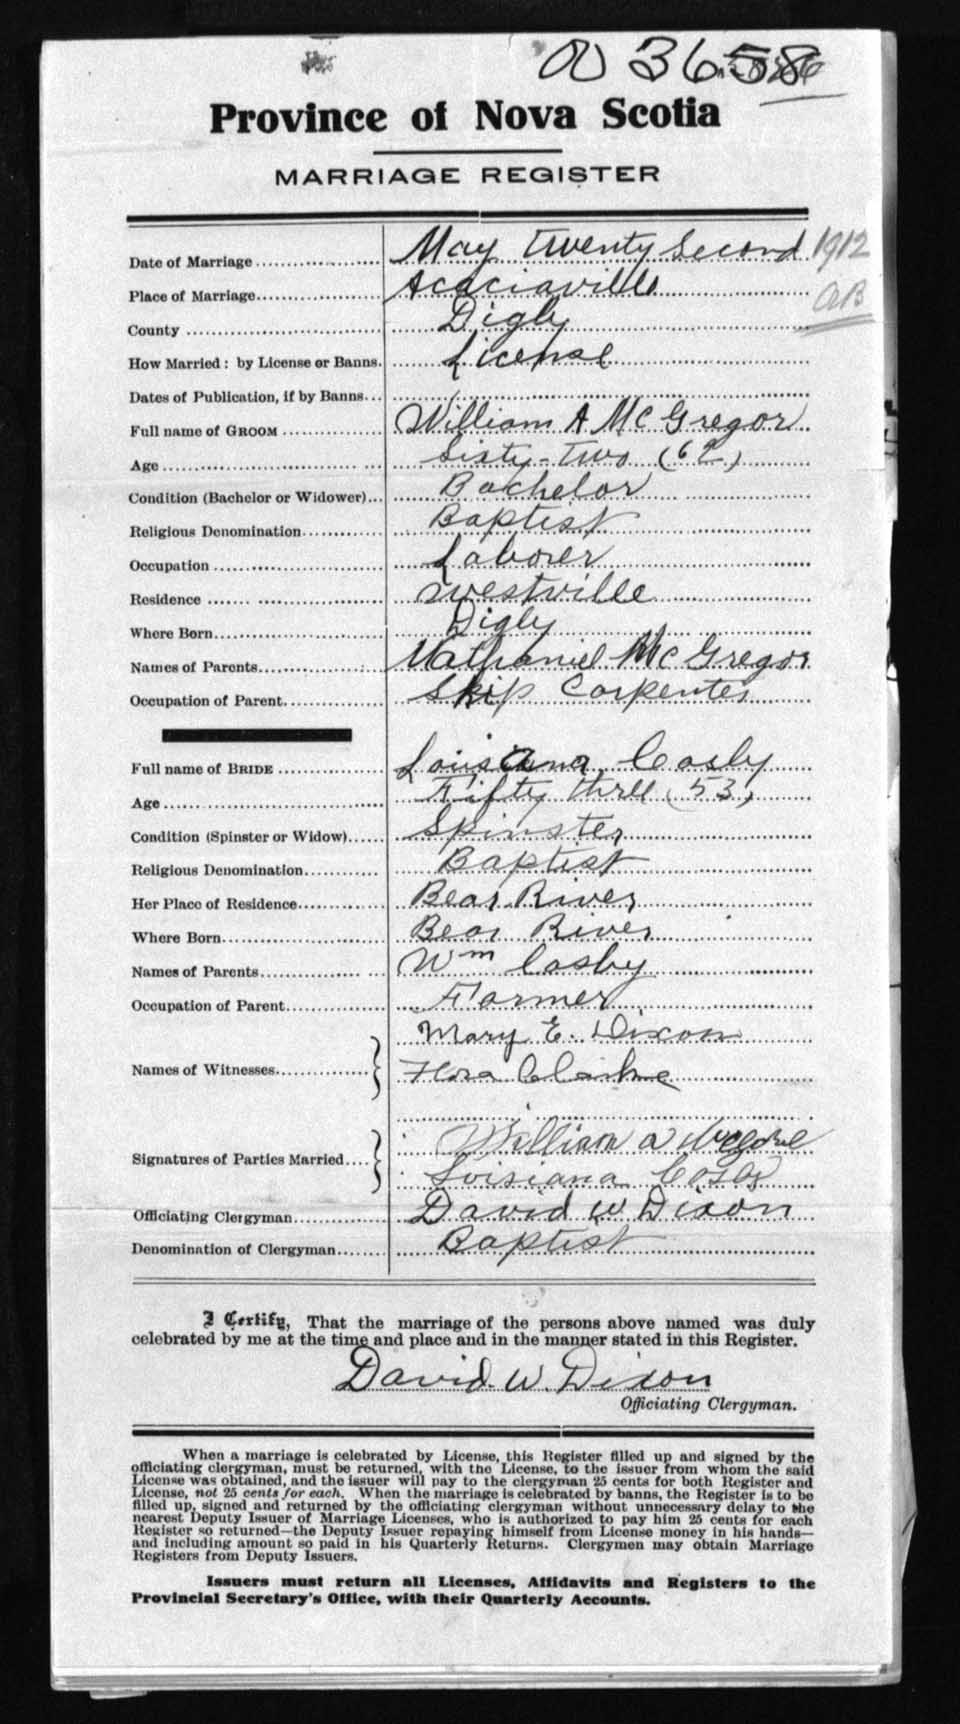 003658
Province of Nova Scotia
MARRIAGE REGISTER
Date of Marriage May Twenty Second 1912
Place of Marriage Acaciaville AB
County Digby
How Married: by License or Banns. License
Dates of Publication, if by Banns
Full name of GROOM William A McGregor
Age Sixty-Two (62)
Condition (Bachelor or Widower) Bachelor
Religious Denomination Baptist
Occupation Laborer
Residence Westville
Where Born Digby
Names of Parents Nathaniel McGregor
Occupation of Parent Ship Carpenter
Full name of BRIDE Louisiana Cosby
Age Fifty three (53)
Condition (Spinster or Widow) Spinster
Religious Denomination Baptist
Her Place of Residence Bear River
Where Born Bear River
Names of Parents Wm Cosby
Occupation of Parent Farmer
Mary E. Dixon
Names of Witnesses Flora Clarke
William A
Signatures of Parties Married
Loisiana Cosby
Officiating Clergyman David W Dixon
Denomination of Clergyman Baptist
I Certify, That the marriage of the persons above named was duly
celebrated by me at the time and place and in the manner stated in this Register.
David W. Dixon
Officiating Clergyman.
When a marriage is celebrated by License, this Register filled up and signed by the
officiating clergyman, must be returned, with the License, to the issuer from whom the said
License was obtained, and the issuer will pay to the clergyman 25 cents for both Register and
License, not 25 cents for each. When the marriage is celebrated by banns, the Register is to be
filled up, signed and returned by the officiating clergyman without unnecessary delay to the
nearest Deputy Issuer of Marriage Licenses, who is authorized to pay him 25 cents for each
Register so returned—the Deputy Issuer repaying himself from License money in his hands—
and including amount so paid in his Quarterly Returns. Clergymen may obtain Marriage
Registers from Deputy Issuers.
Issuers must return all Licenses, Affidavits and Registers to the
Provincial Secretary's Office, with their Quarterly Accounts.